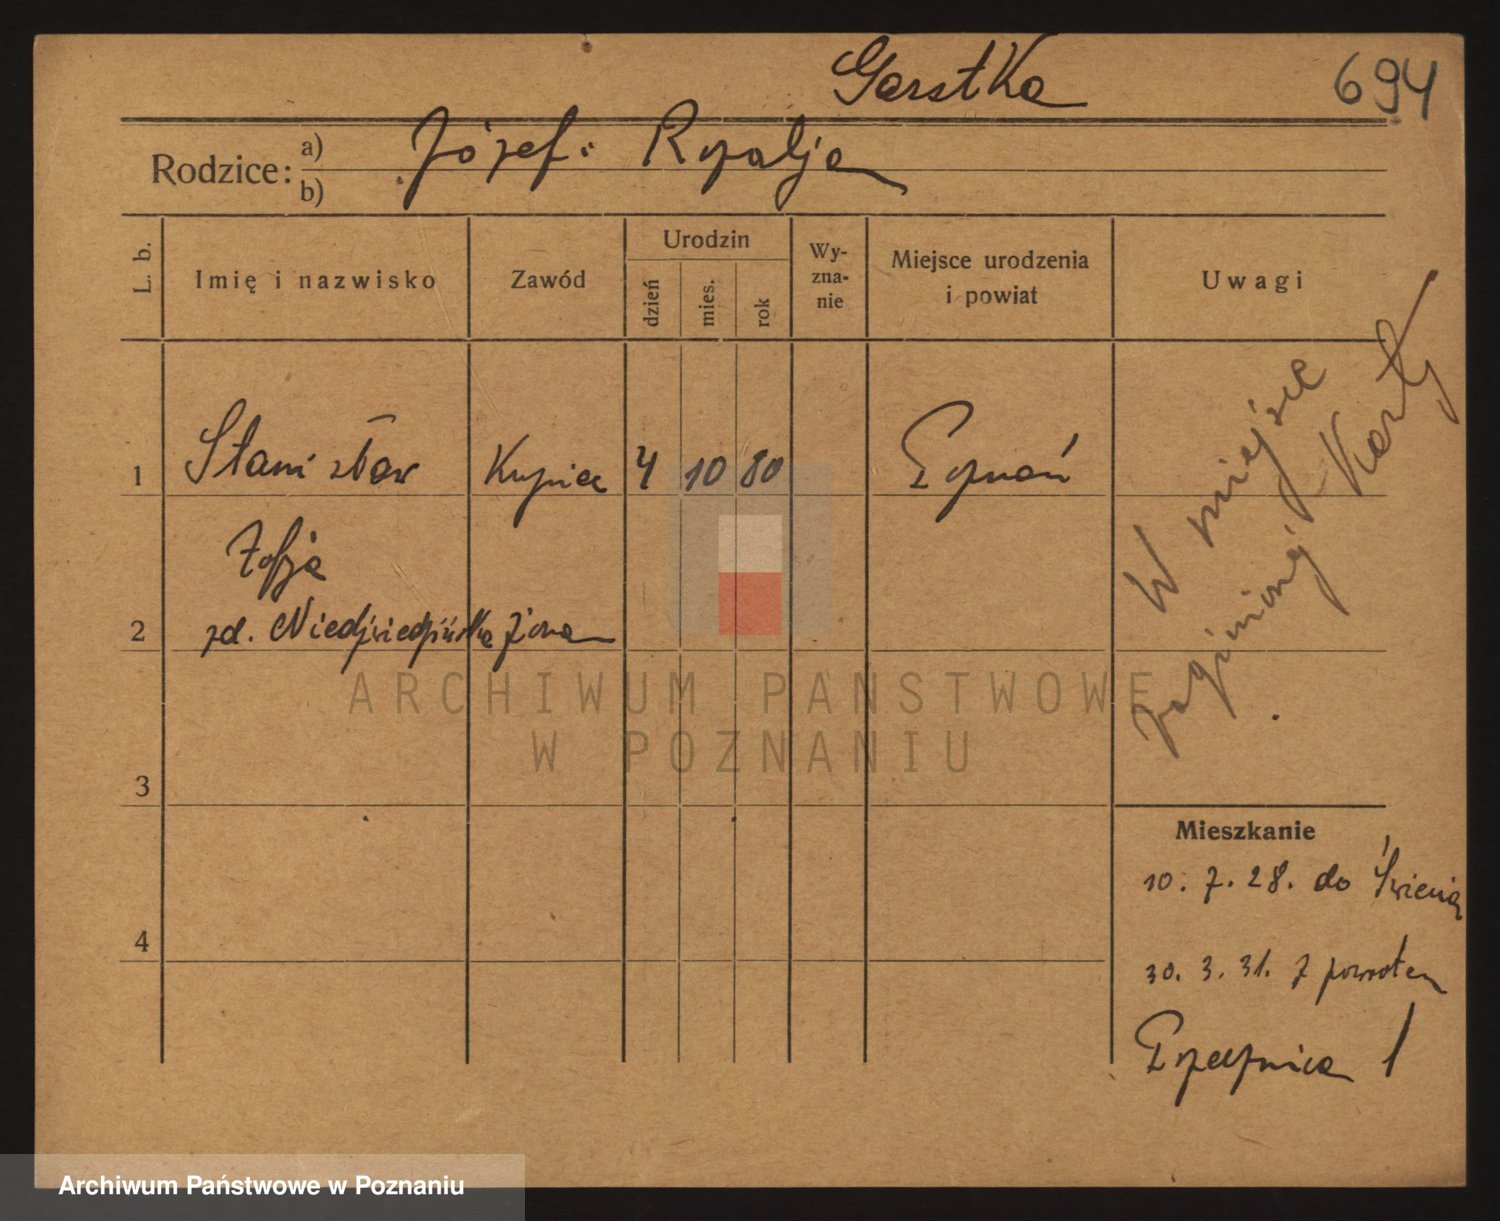 Garstka
694
Rodzice: a) b)
Józef i Rozalja
L. b.
Imię i nazwisko
Zawód
Urodzin
dzień
mies.
rok
Wy-
zna-
nie
Miejsce urodzenia
i powiat
Uwagi
1 Stanisław Kupiec 4 10 80 Poznań
Zofja
2 zd. Niedźwiedzińska żona
3
4
W miejsce
zaginionej Karty
Mieszkanie
10. 7. 28. do
30. 3. 31. z powrotem
1
ARCHIWUM PAŃSTWOWE
W POZNANIU
Archiwum Państwowe w Poznaniu